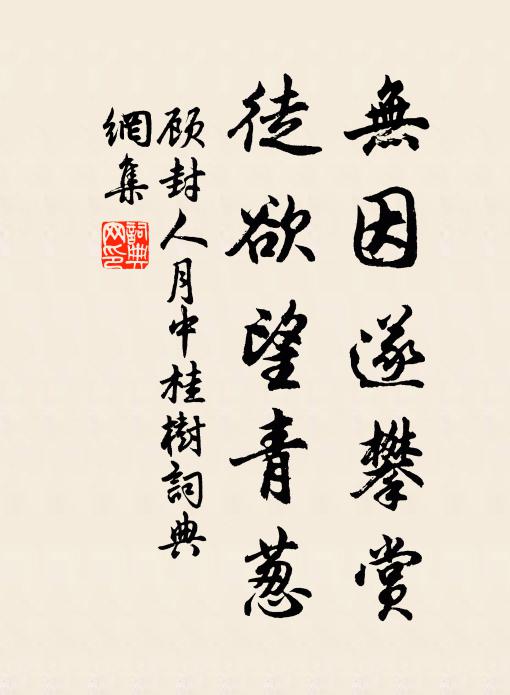 無因遂攀賞
徒欲望青葱
顾封人月中桂樹詞典
網集
詞典
网印